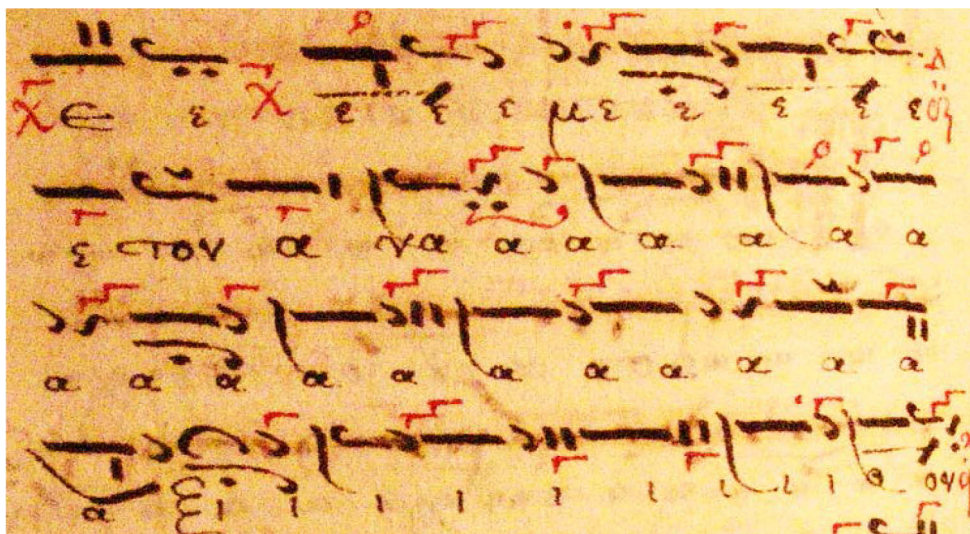 ε ε ε ε ε με ε ε ε ε
ε στον α να α α α α α α
α α α α α α α α α α α
α ξι ι ι ι ι ι ι ι ι ου